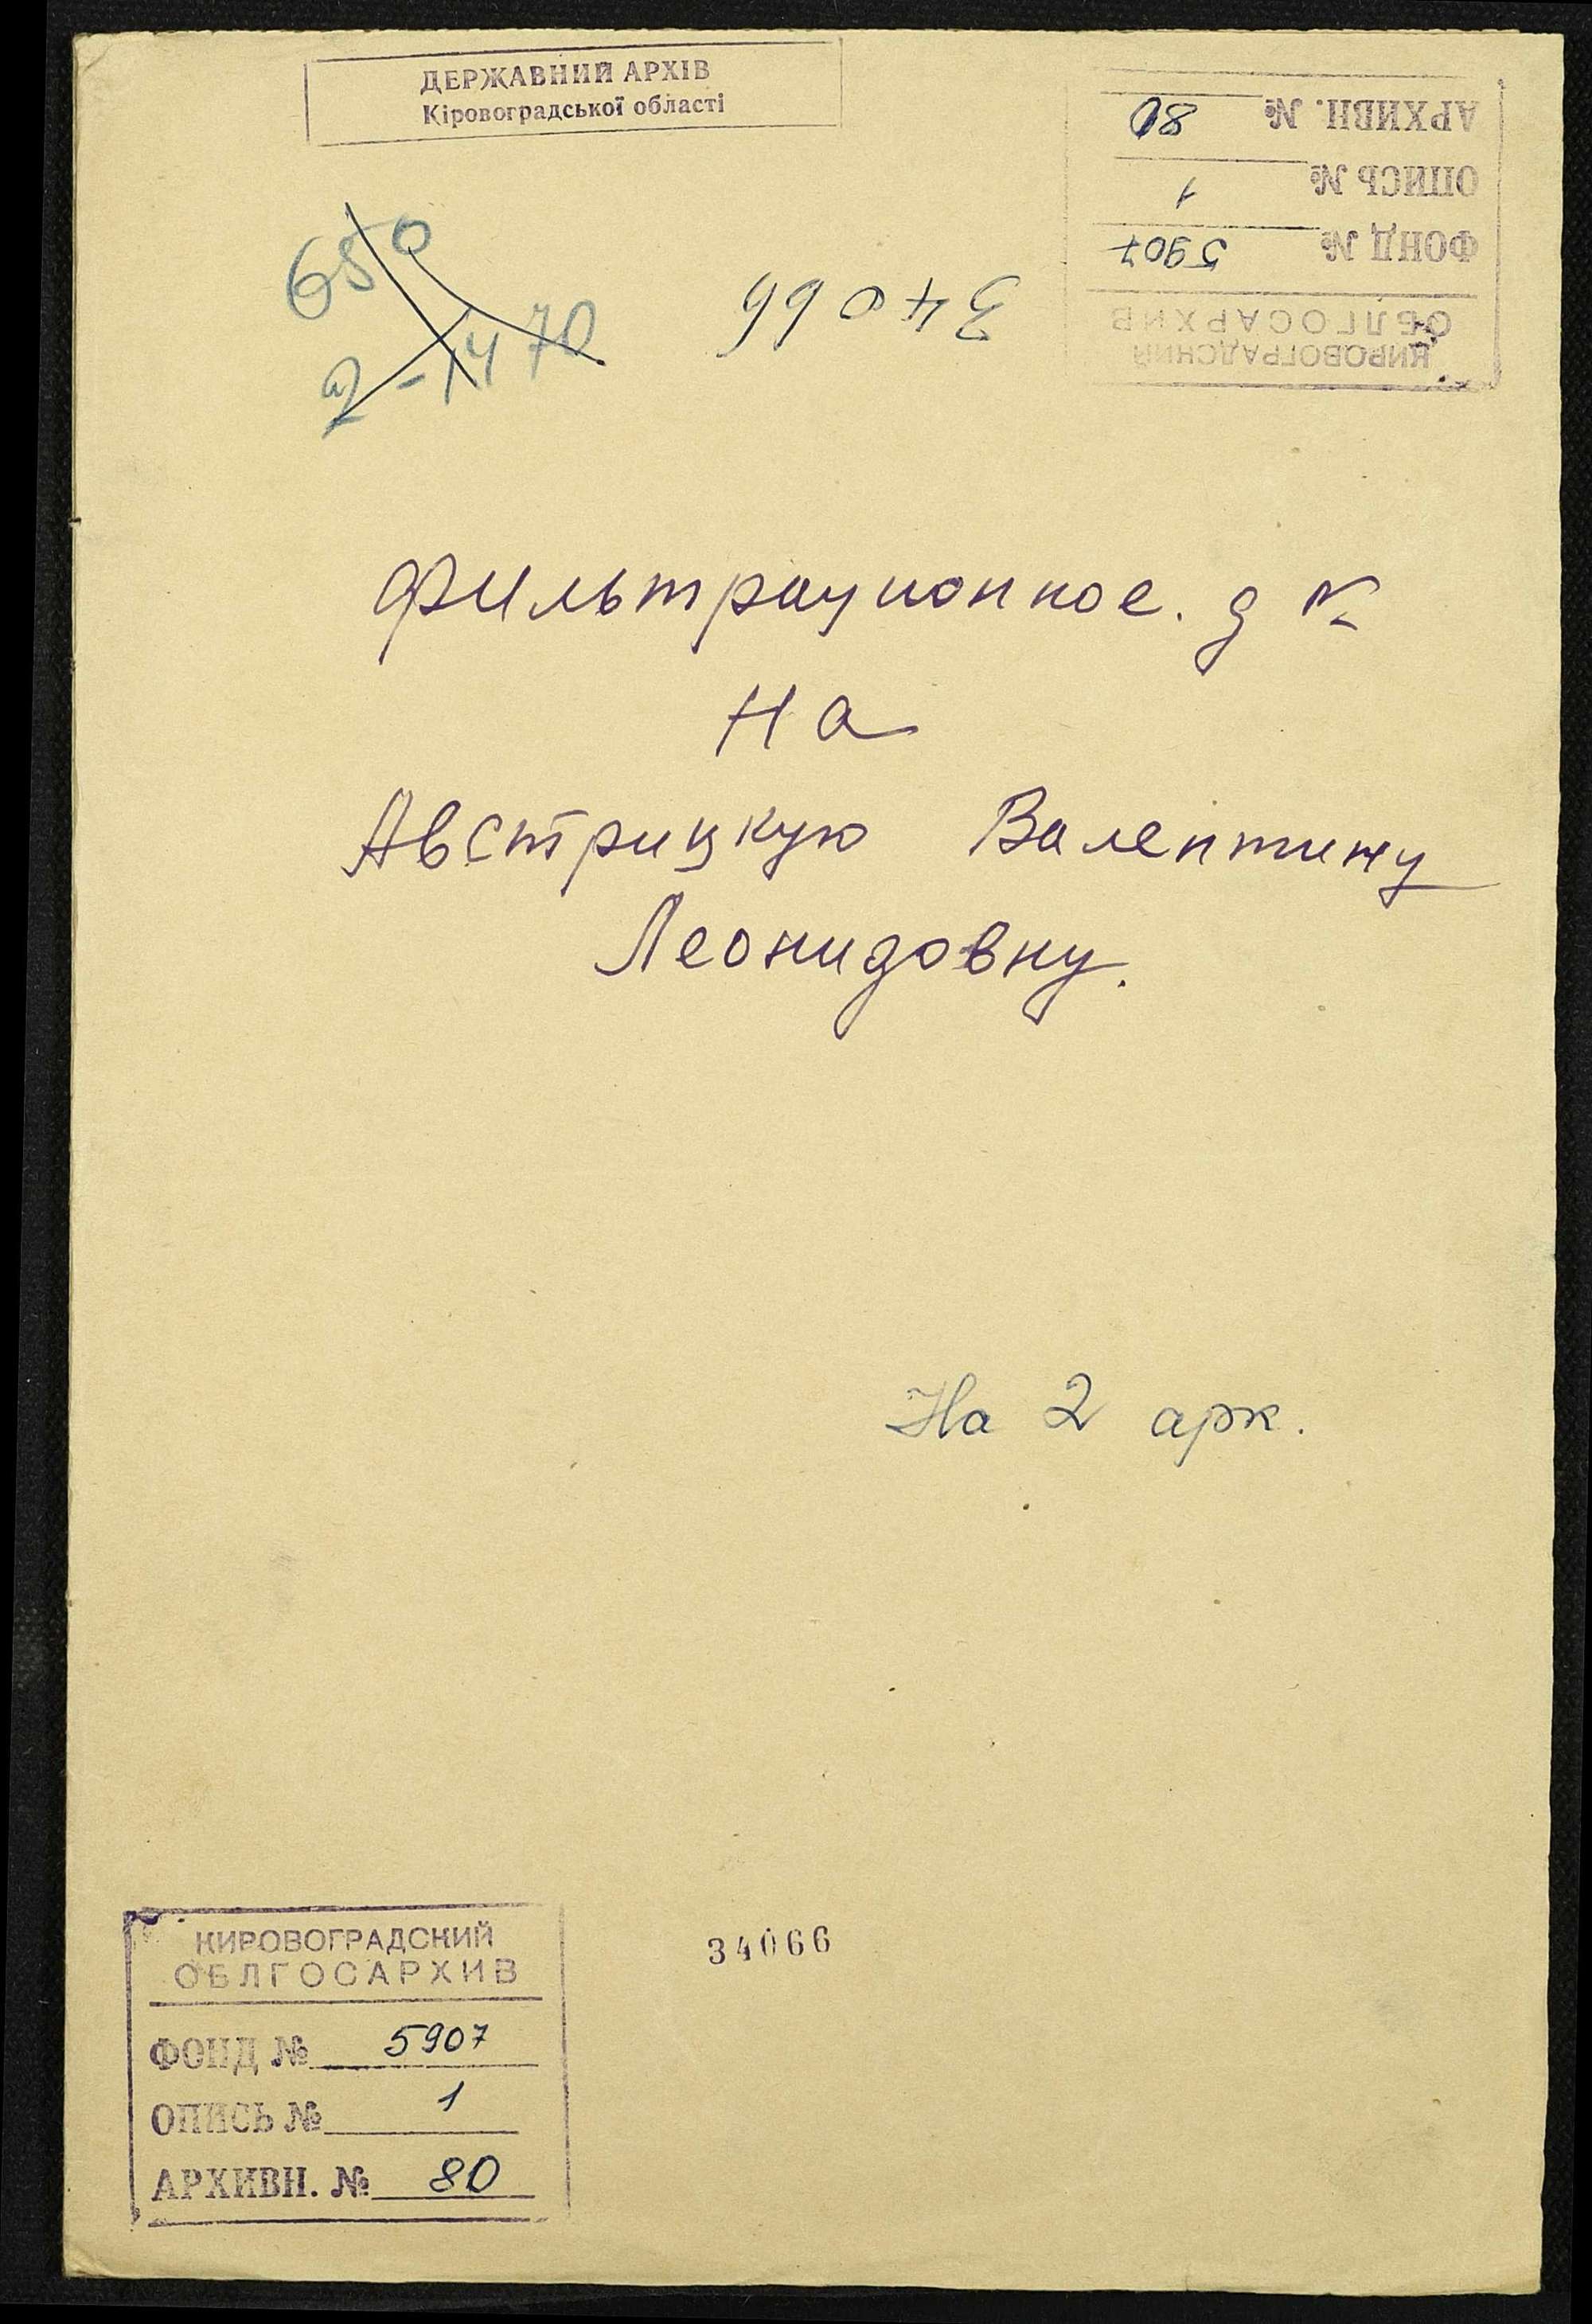 ДЕРЖАВНИЙ АРХІВ
Кіровоградської області
АРХИВН. № 80
ОПИСЬ № 1
ФОНД № 5907
ОБЛГОСАРХИВ
КИРОВОГРАДСКИЙ
650
2-1470
34066
Фильтрационное. д
на
Австрицкую Валентину
Леонидовну.
На 2 арк.
КИРОВОГРАДСКИЙ
ОБЛГОСАРХИВ
ФОНД № 5907
ОПИСЬ № 1
АРХИВН. № 80
34066